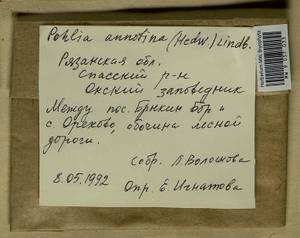 Pohlia annotina (Hedw.) Lindb.
Рязанская обл.
Спасский р-н
Окский заповедник
Между пос. Брыкин бор и
с. Орехово, обочина лесной
дороги.
Собр. Л. Волоснова
8.05.1992 Опр. Е. Игнатова